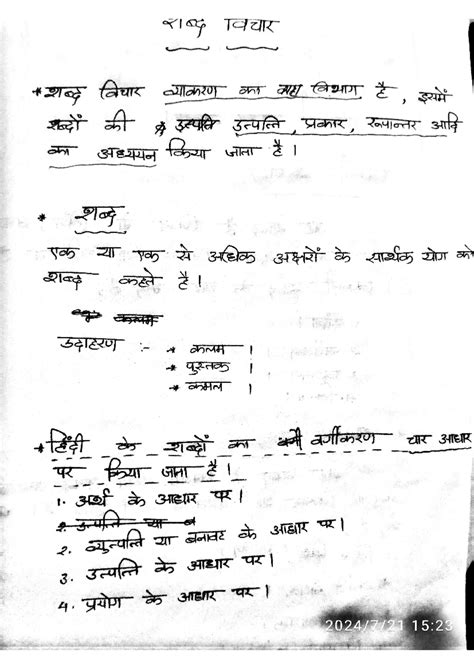 शब्द विचार
* शब्द विचार व्याकरण का वह विभाग है, इसमें
शब्दों की उत्पत्ति उत्पत्ति, प्रकार, रूपान्तर आदि
का अध्ययन किया जाता है।
* शब्द
एक या एक से अधिक अक्षरों के सार्थक योग को
शब्द कहते है।
कलम
उदाहरण :- * कलम ।
* पुस्तक ।
* कमल ।
* हिंदी के शब्दों का वर्गीकरण चार आधार
पर किया जाता है।
1. अर्थ के आधार पर।
2. उत्पत्ति या
2. व्युत्पत्ति या बनावट के आधार पर।
3. उत्पत्ति के आधार पर।
4. प्रयोग के आधार पर।
2024/7/21 15:23